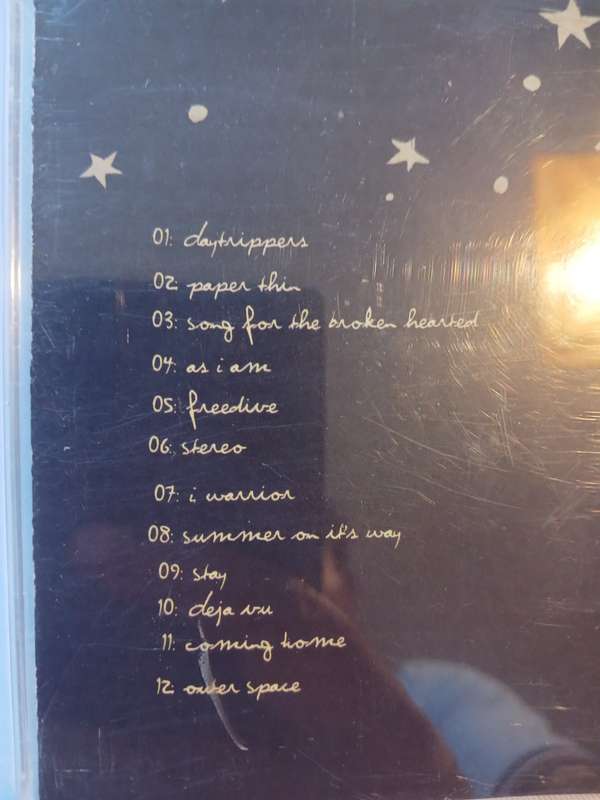 01: daytrippers
02: paper thin
03: song for the broken hearted
04: as i am
05: freedive
06: stereo
07: i, warrior
08: summer on it's way
09: stay
10: deja vu
11: coming home
12: outer space